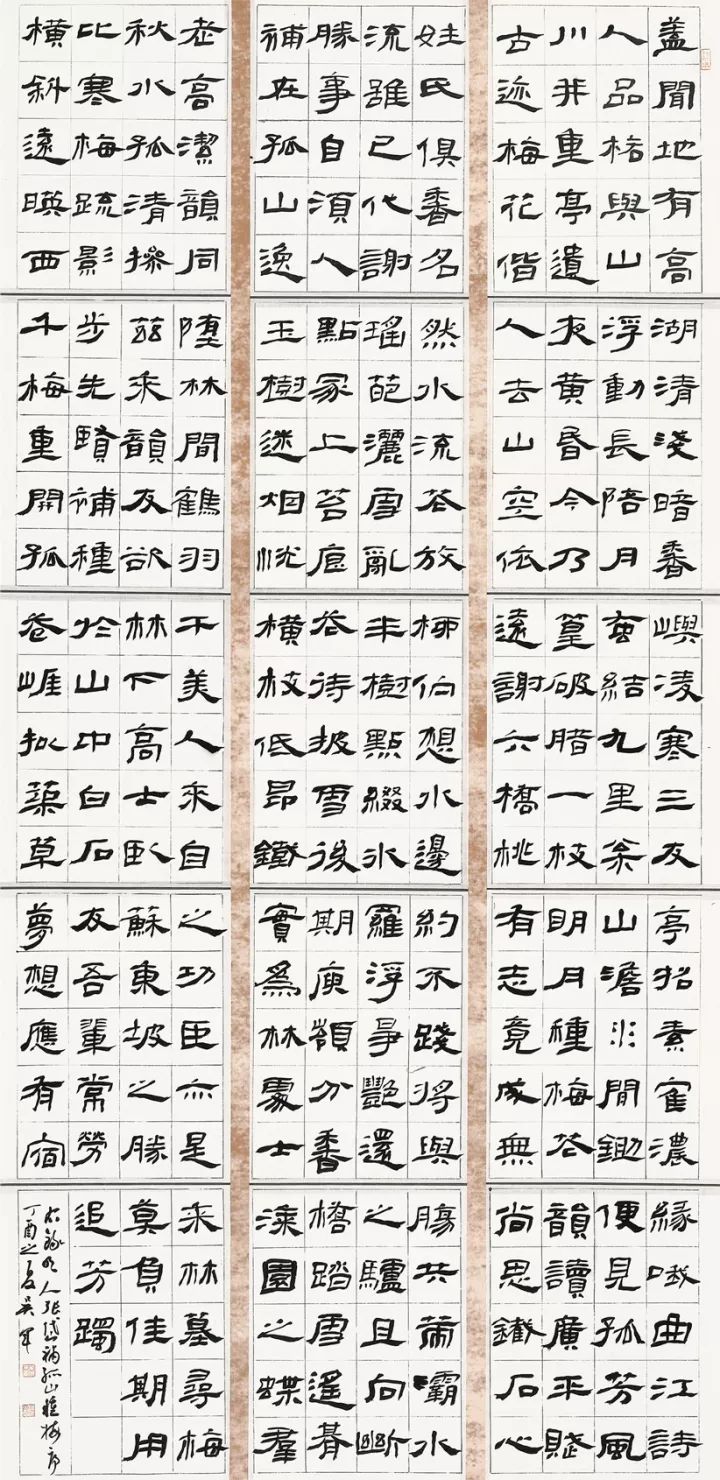 蓋聞地有高
人品格與山
川并重亭遺
古迹梅花偕
姓氏俱香名
流雖已代謝
勝事自須人
補在孤山逸
老高潔韻同
秋水孤清操
比寒梅疏影
橫斜遠暎西
湖清淺暗香
浮動長陪月
夜黃昏今乃
人去山空依
然水流花放
瑤葩灑雪亂
點冢上苔痕
玉樹迷烟恍
墮林間鶴羽
茲來韻友欲
步先賢補種
千梅重開孤
嶼凌寒三友
蚤結九里松
篁破腊一枝
遠謝六橋桃
柳佇想水邊
半樹點綴冰
花待披雪後
橫枝低昂鐵
干美人來自
林下高士臥
於山中白石
蒼崖拟築草
亭招素寉濃
山澹水閒鋤
明月種梅花
有志竟成無
約不踐將與
羅浮爭艷還
期庾嶺分香
實為林處士
之功臣亦是
蘇東坡之勝
友吾輩常勞
夢想應有宿
緣哦曲江詩
便見孤芳風
韻讀廣平賦
尚思鐵石心
腸共策灞水
之驢且向斷
橋踏雪遙瞻
漆園之蝶羣
來林墓尋梅
莫負佳期用
追芳躅
右錄明人張岱補孤山種梅序
丁酉之夏吳軍